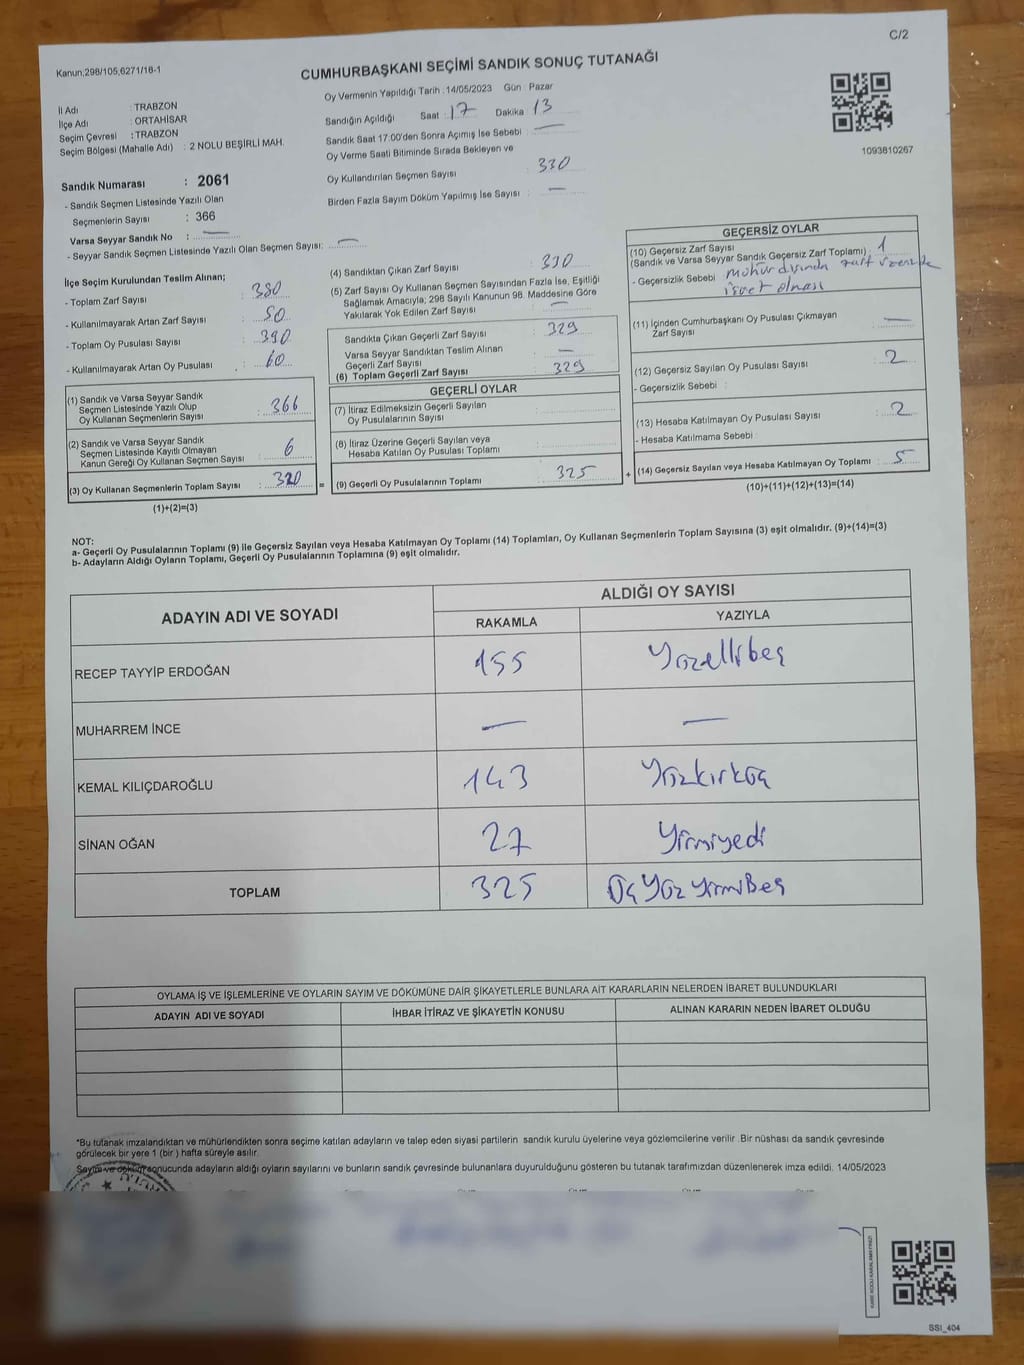 C/2
Kanun:298/105,6271/16-1
CUMHURBAŞKANI SEÇİMİ SANDIK SONUÇ TUTANAĞI
İl Adı : TRABZON
İlçe Adı : ORTAHİSAR
Seçim Çevresi : TRABZON
Seçim Bölgesi (Mahalle Adı) : 2 NOLU BEŞİRLİ MAH.
Sandık Numarası : 2061
- Sandık Seçmen Listesinde Yazılı Olan
Seçmenlerin Sayısı : 366
Varsa Seyyar Sandık No : —
- Seyyar Sandık Seçmen Listesinde Yazılı Olan Seçmen Sayısı: —
Oy Vermenin Yapıldığı Tarih : 14/05/2023 Gün : Pazar
Sandığın Açıldığı Saat : 17 Dakika : 13
Sandık Saat 17:00'den Sonra Açımış İse Sebebi : —
Oy Verme Saati Bitiminde Sırada Bekleyen ve
Oy Kullandırılan Seçmen Sayısı : 330
Birden Fazla Sayım Döküm Yapılmış İse Sayısı : —
1093810267
İlçe Seçim Kurulundan Teslim Alınan;
- Toplam Zarf Sayısı : 380
- Kullanılmayarak Artan Zarf Sayısı : 50
- Toplam Oy Pusulası Sayısı : 390
- Kullanılmayarak Artan Oy Pusulası : 60
(1) Sandık ve Varsa Seyyar Sandık
Seçmen Listesinde Yazılı Olup
Oy Kullanan Seçmenlerin Sayısı : 366
(2) Sandık ve Varsa Seyyar Sandık
Seçmen Listesinde Kayıtlı Olmayan
Kanun Gereği Oy Kullanan Seçmen Sayısı : 6
(3) Oy Kullanan Seçmenlerin Toplam Sayısı :
(1)+(2)=(3)
(4) Sandıktan Çıkan Zarf Sayısı : 330
(5) Zarf Sayısı Oy Kullanan Seçmen Sayısından Fazla İse, Eşitliği
Sağlamak Amacıyla; 298 Sayılı Kanunun 98. Maddesine Göre
Yakılarak Yok Edilen Zarf Sayısı : —
Sandıkta Çıkan Geçerli Zarf Sayısı : 329
Varsa Seyyar Sandıktan Teslim Alınan
Geçerli Zarf Sayısı : —
(6) Toplam Geçerli Zarf Sayısı : 329
GEÇERLİ OYLAR
(7) İtiraz Edilmeksizin Geçerli Sayılan
Oy Pusulasının Sayısı :
(8) İtiraz Üzerine Geçerli Sayılan veya
Hesaba Katılan Oy Pusulası Toplamı :
= (9) Geçerli Oy Pusulalarının Toplamı : 325 +
GEÇERSİZ OYLAR
(10) Geçersiz Zarf Sayısı
(Sandık ve Varsa Seyyar Sandık Geçersiz Zarf Toplamı) : 1
- Geçersizlik Sebebi : mühür dışında zarf üzerinde
işaret olması
(11) İçinden Cumhurbaşkanı Oy Pusulası Çıkmayan
Zarf Sayısı : —
(12) Geçersiz Sayılan Oy Pusulası Sayısı : 2
- Geçersizlik Sebebi :
(13) Hesaba Katılmayan Oy Pusulası Sayısı : 2
- Hesaba Katılmama Sebebi :
(14) Geçersiz Sayılan veya Hesaba Katılmayan Oy Toplamı : 5
(10)+(11)+(12)+(13)=(14)
NOT:
a- Geçerli Oy Pusulalarının Toplamı (9) ile Geçersiz Sayılan veya Hesaba Katılmayan Oy Toplamı (14) Toplamları, Oy Kullanan Seçmenlerin Toplam Sayısına (3) eşit olmalıdır. (9)+(14)=(3)
b- Adayların Aldığı Oyların Toplamı, Geçerli Oy Pusulalarının Toplamına (9) eşit olmalıdır.
ADAYIN ADI VE SOYADI ALDIĞI OY SAYISI
RAKAMLA YAZIYLA
RECEP TAYYİP ERDOĞAN 155 Yüzellibeş
MUHARREM İNCE — —
KEMAL KILIÇDAROĞLU 143 Yüzkırküç
SİNAN OĞAN 27 Yirmiyedi
TOPLAM 325 Üç Yüz YirmiBeş
OYLAMA İŞ VE İŞLEMLERİNE VE OYLARIN SAYIM VE DÖKÜMÜNE DAİR ŞİKAYETLERLE BUNLARA AİT KARARLARIN NELERDEN İBARET BULUNDUKLARI
ADAYIN ADI VE SOYADI İHBAR İTİRAZ VE ŞİKAYETİN KONUSU ALINAN KARARIN NEDEN İBARET OLDUĞU
*Bu tutanak imzalandıktan ve mühürlendikten sonra seçime katılan adayların ve talep eden siyasi partilerin sandık kurulu üyelerine veya gözlemcilerine verilir .Bir nüshası da sandık çevresinde
görülecek bir yere 1 (bir ) hafta süreyle asılır.
Sayım ve döküm sonucunda adayların aldığı oyların sayılarını ve bunların sandık çevresinde bulunanlara duyurulduğunu gösteren bu tutanak tarafımızdan düzenlenerek imza edildi. 14/05/2023
KARE KODU KARALAMAYINIZ!
SSİ_404